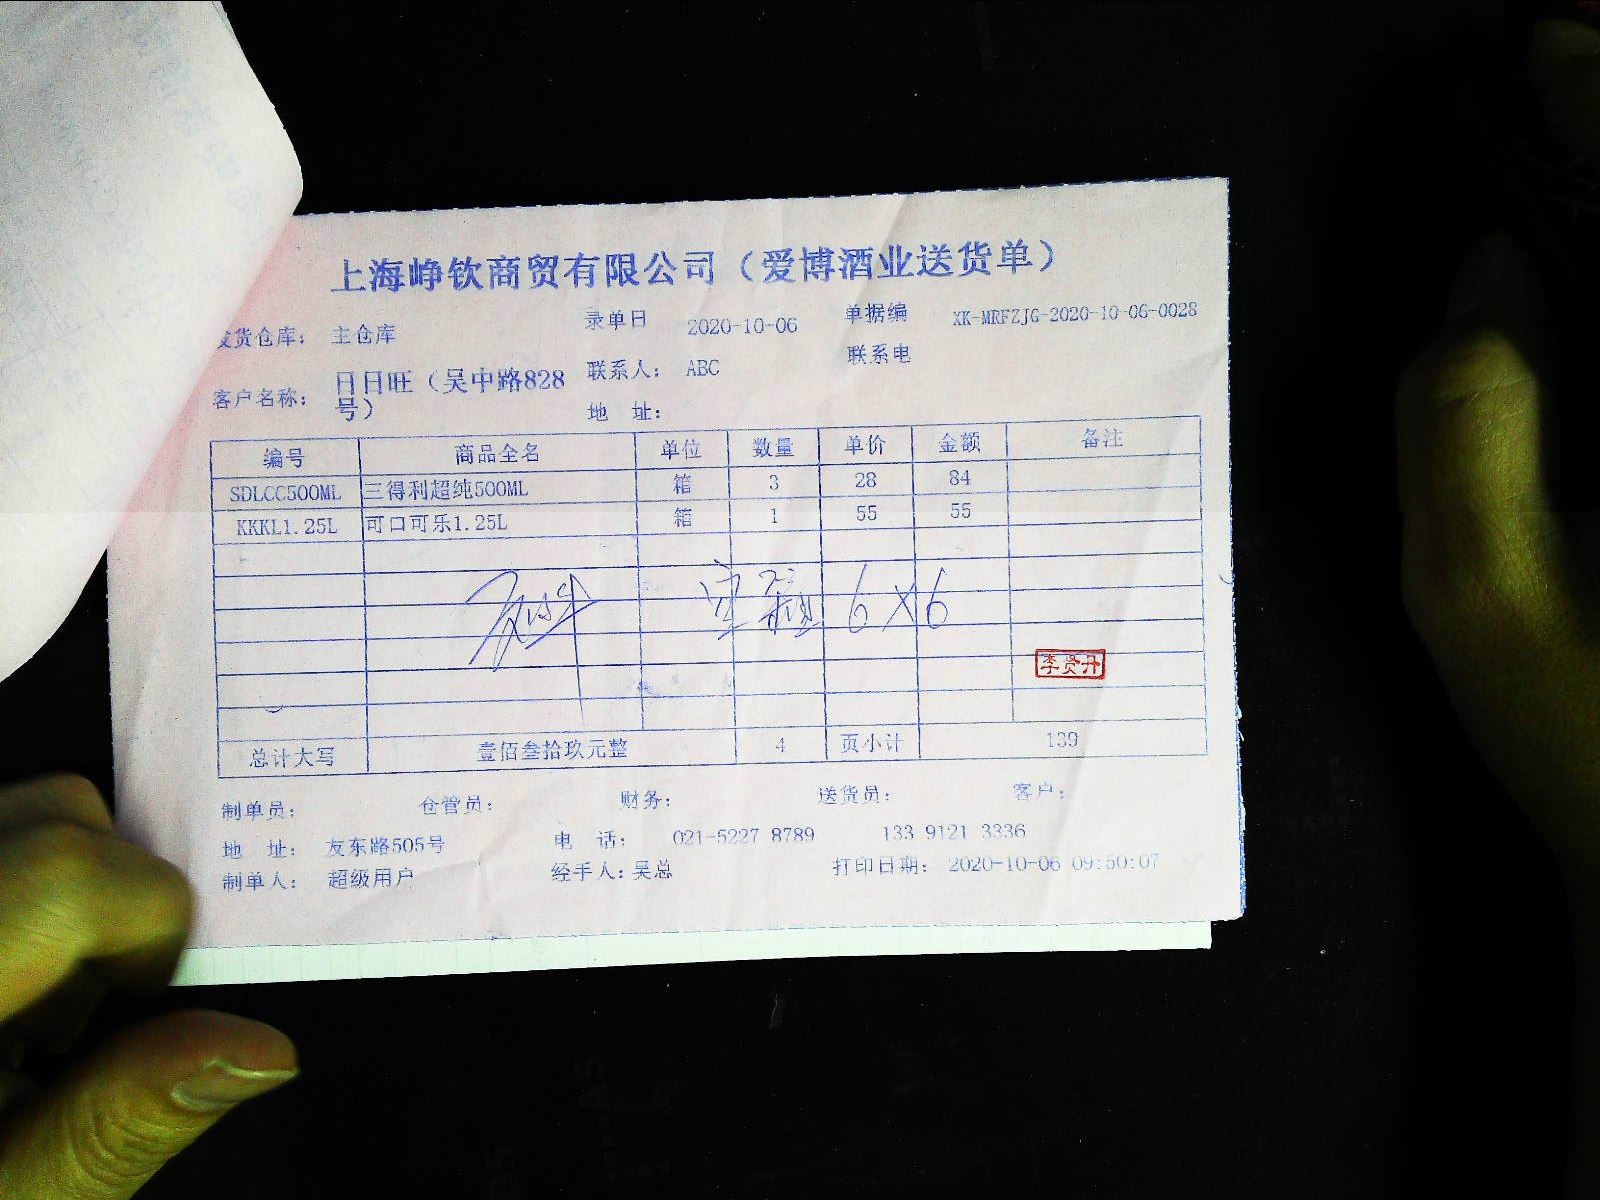 上海峥钦商贸有限公司（爱博酒业送货单）
发货仓库： 主仓库 录单日 2020-10-06 单据编 XK-MRFZJG-2020-10-06-0028
客户名称： 日日旺（吴中路828号） 联系人： ABC 联系电
地 址：
编号 商品全名 单位 数量 单价 金额 备注
SDLCC500ML 三得利超纯500ML 箱 3 28 84
KKKL1.25L 可口可乐1.25L 箱 1 55 55
6×6
李贤丹
总计大写 壹佰叁拾玖元整 4 页小计 139
制单员： 仓管员： 财务： 送货员： 客户：
地 址： 友东路505号 电 话： 021-5227 8789 133 9121 3336
制单人： 超级用户 经手人：吴总 打印日期： 2020-10-06 09:50:07